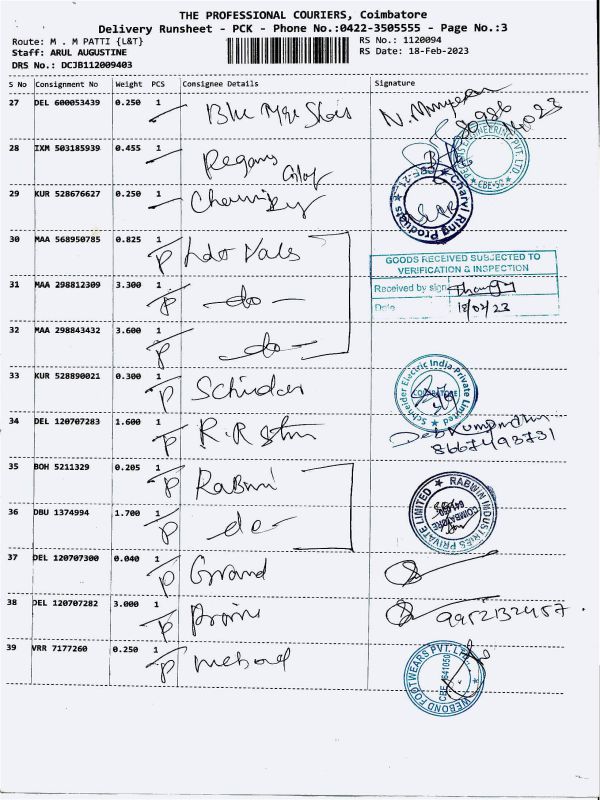 THE PROFESSIONAL COURIERS, Coimbatore
Delivery Runsheet - PCK - Phone No.:0422-3505555 - Page No.:3
Route: M . M PATTI {L&T}
RS No.: 1120094
Staff: ARUL AUGUSTINE
RS Date: 18-Feb-2023
DRS No.: DCJB112009403
S No Consignment No Weight PCS Consignee Details Signature
27 DEL 600053439 0.250 1
28 IXM 503185939 0.455 1
29 KUR 528676627 0.250 1
Charvi Ring Products
30 MAA 568950785 0.825 1
GOODS RECEIVED SUBJECTED TO
VERIFICATION & INSPECTION
31 MAA 298812309 3.300 1 - do -
Received by sign
Date 18/02/23
32 MAA 298843432 3.600 1 - do -
33 KUR 528890021 0.300 1
Schneider Electric India Private Limited
COIMBATORE
34 DEL 120707283 1.600 1
8667493731
35 BOH 5211329 0.205 1 Rabwin
RABWIN INDUSTRIES PRIVATE LIMITED
COIMBATORE
36 DBU 1374994 1.700 1 - do -
37 DEL 120707300 0.040 1 Grand
38 DEL 120707282 3.000 1
9952132457
39 VRR 7177260 0.250 1
WEBOND FOOTWEARS PVT. LTD.
CBE-641050